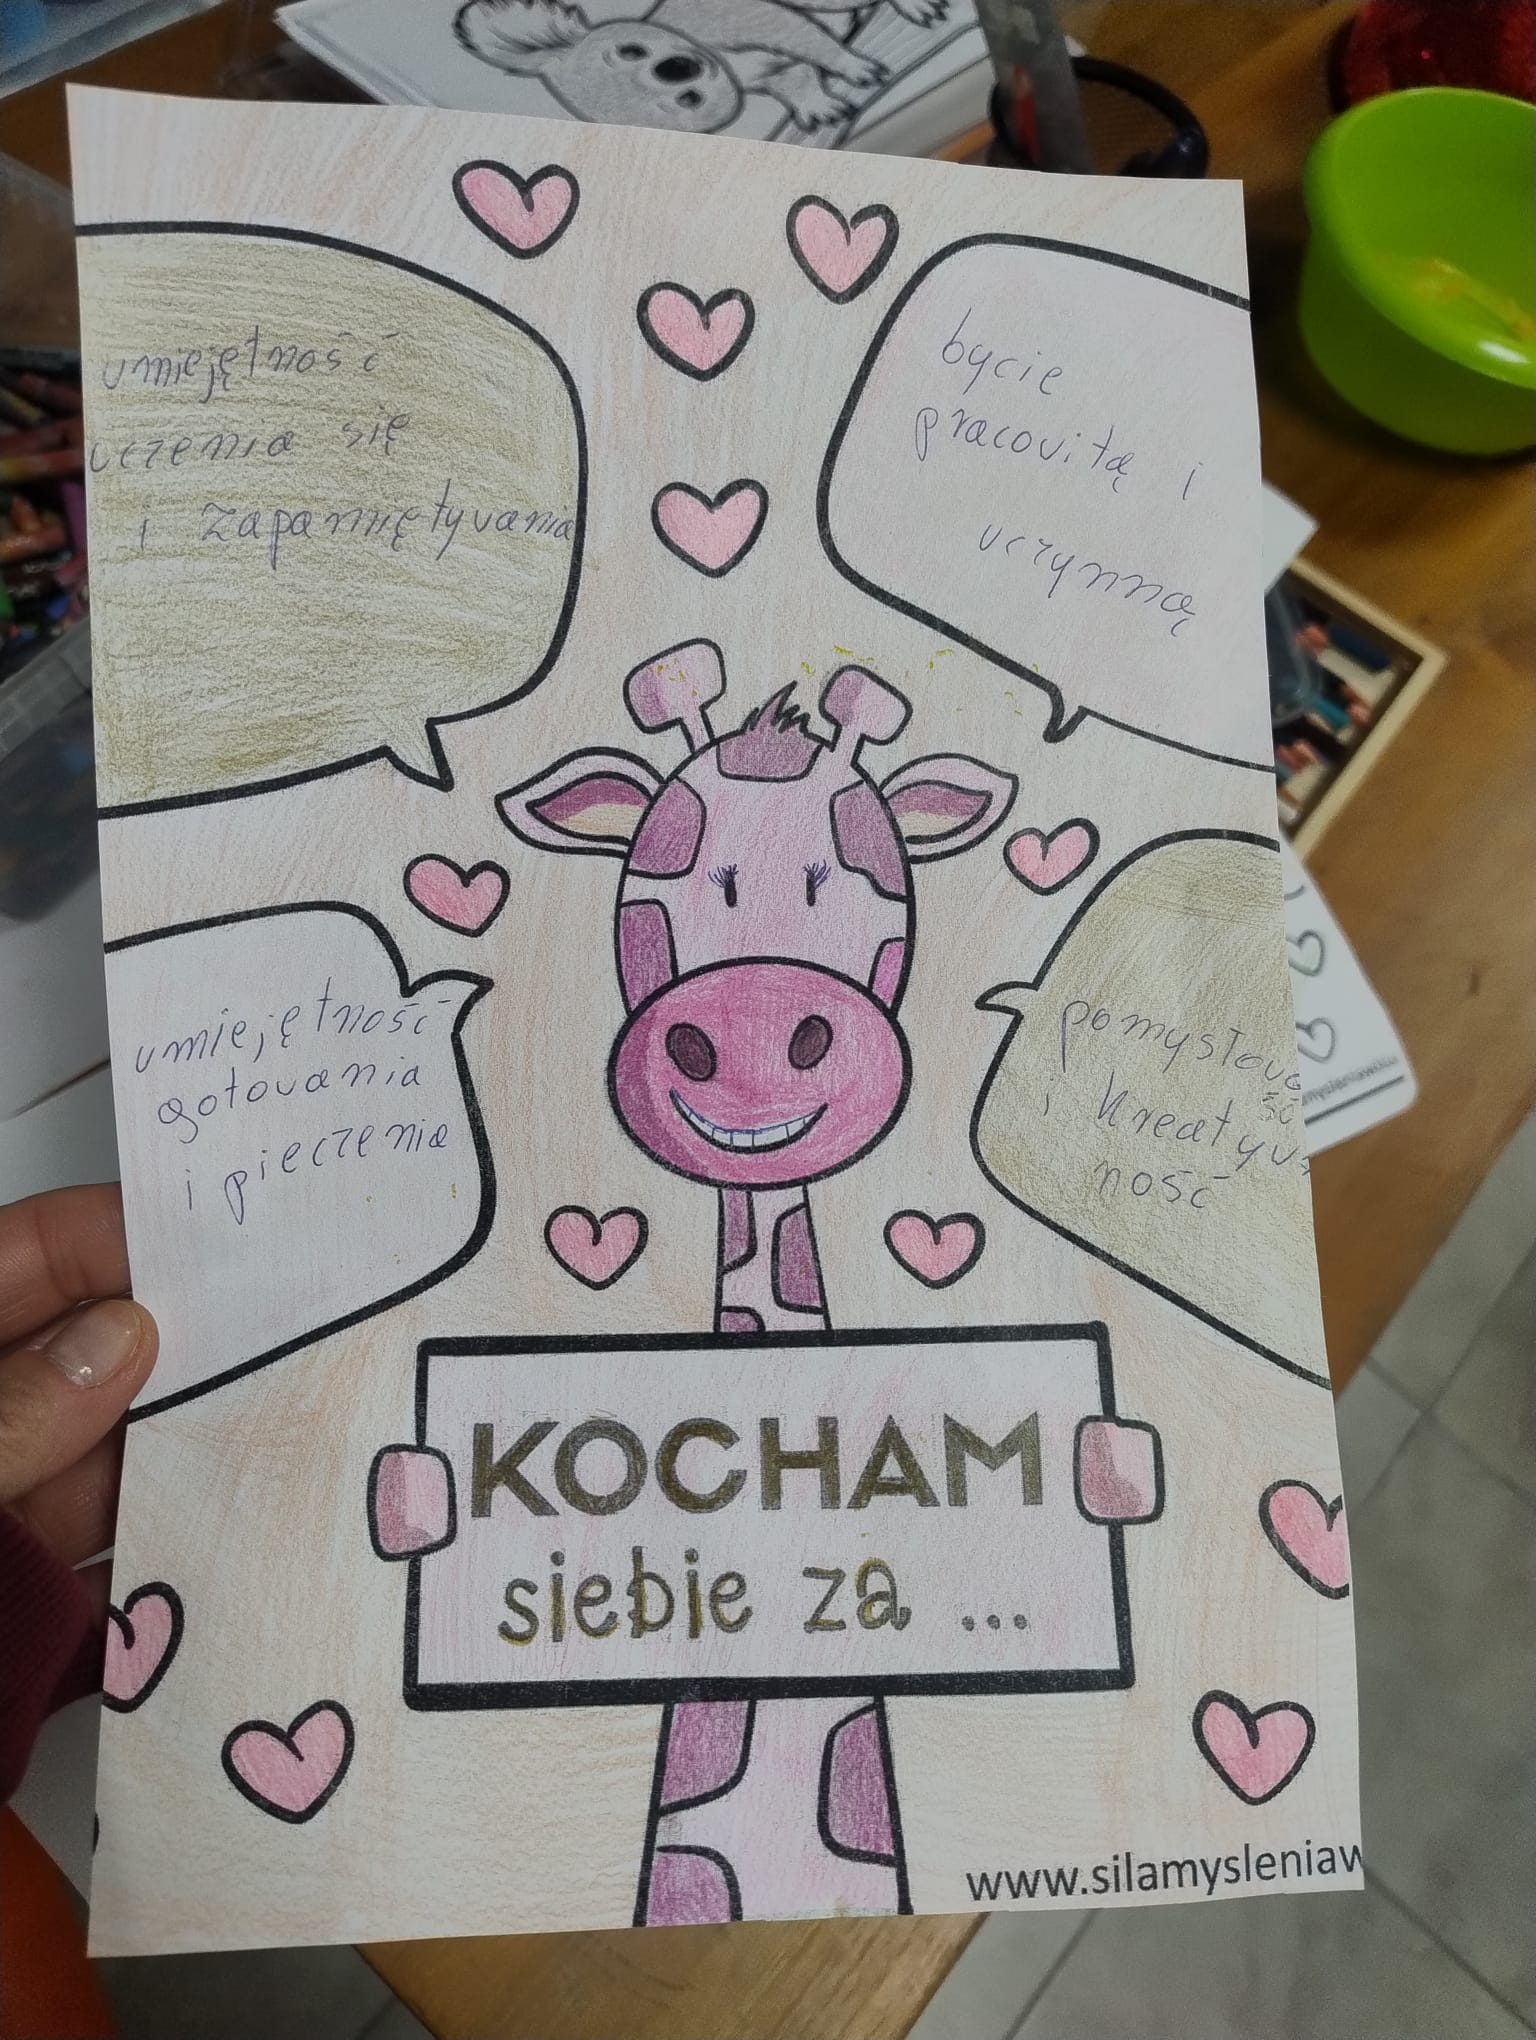 umiejętność
uczenia się
i zapamiętywania
bycie
pracowitą i
uczynną
umiejętność
gotowania
i pieczenia
pomysłowo
ść
i kreatyw
ność
KOCHAM
siebie za ...
www.silamysleniaw